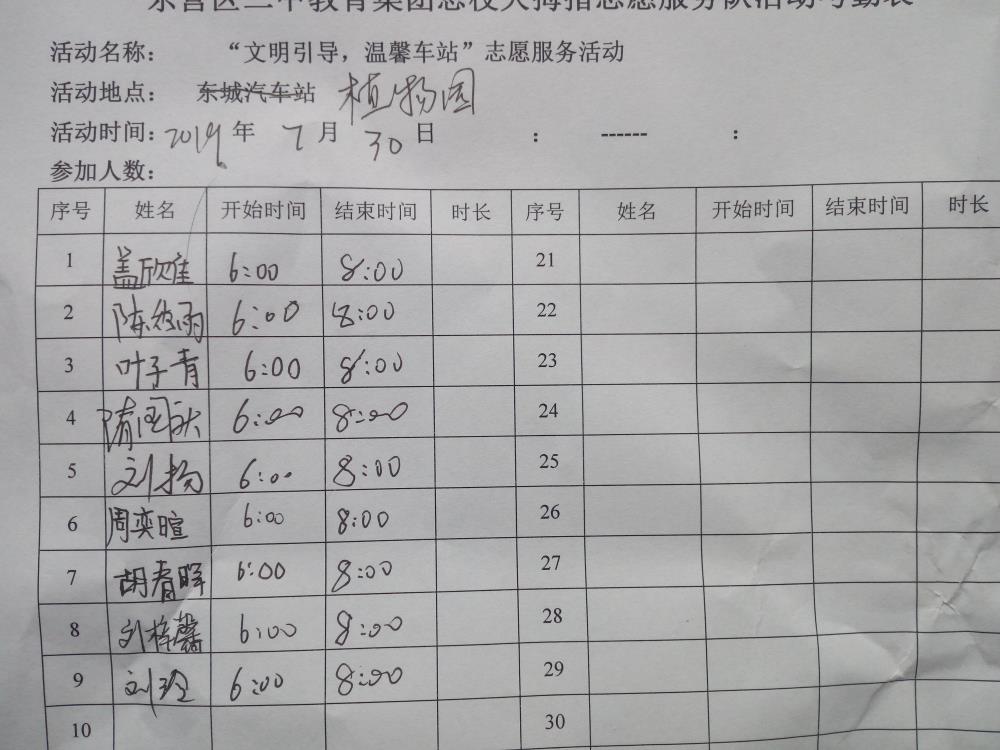 东营区二中教育集团总校大拇指志愿服务队活动考勤表
活动名称： “文明引导，温馨车站”志愿服务活动
活动地点： 东城汽车站 植物园
活动时间：2019年 7月 30日 ： ------ ：
参加人数：
序号 姓名 开始时间 结束时间 时长 序号 姓名 开始时间 结束时间 时长
1 盖欣佳 6:00 8:00 21
2 陈 雨 6:00 8:00 22
3 叶子青 6:00 8:00 23
4 隋 6:00 8:00 24
5 刘扬 6:00 8:00 25
6 周奕暄 6:00 8:00 26
7 胡春晖 6:00 8:00 27
8 刘梓馨 6:00 8:00 28
9 刘玲 6:00 8:00 29
10 30